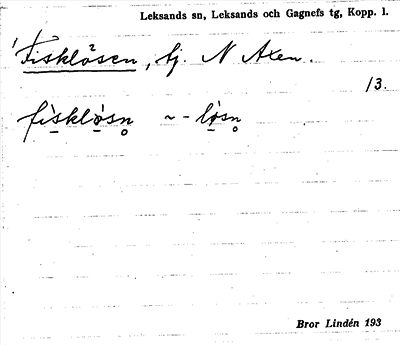 Leksands sn, Leksands och Gagnefs tg, Kopp. l.
Fisklösen, tj. N Axen.
/3.
fìsklòsn ~ - lòsn
Bror Lindén 193